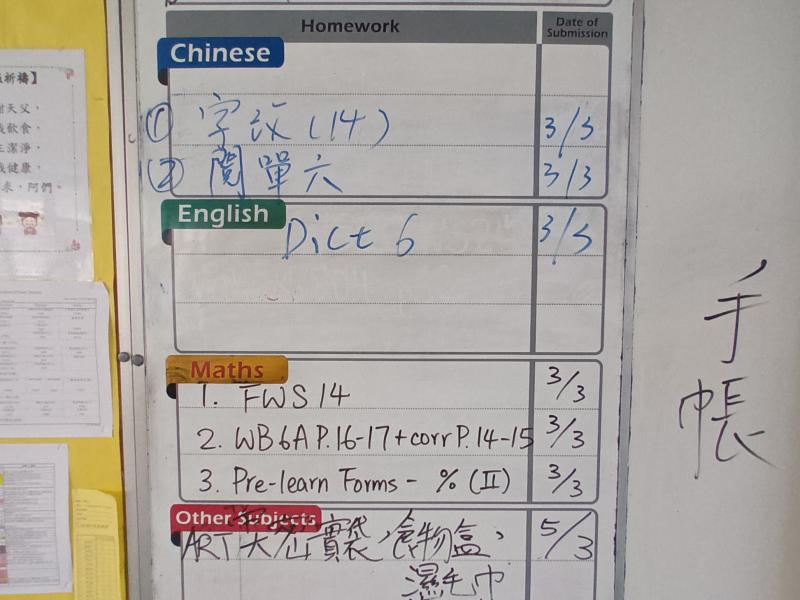 Homework Date of Submission
Chinese
① 字改(14) 3/3
② 閱單六 3/3
English
Dict 6 3/3
Maths
1. FWS 14 3/3
2. WB6A P.16-17+corr P.14-15 3/3
3. Pre-learn Forms - % (II) 3/3
Other Subjects
ART 食物盒、 5/3
濕毛巾
手帳
祈禱】
天父,
飲食,
潔淨,
健康,
來,阿們。